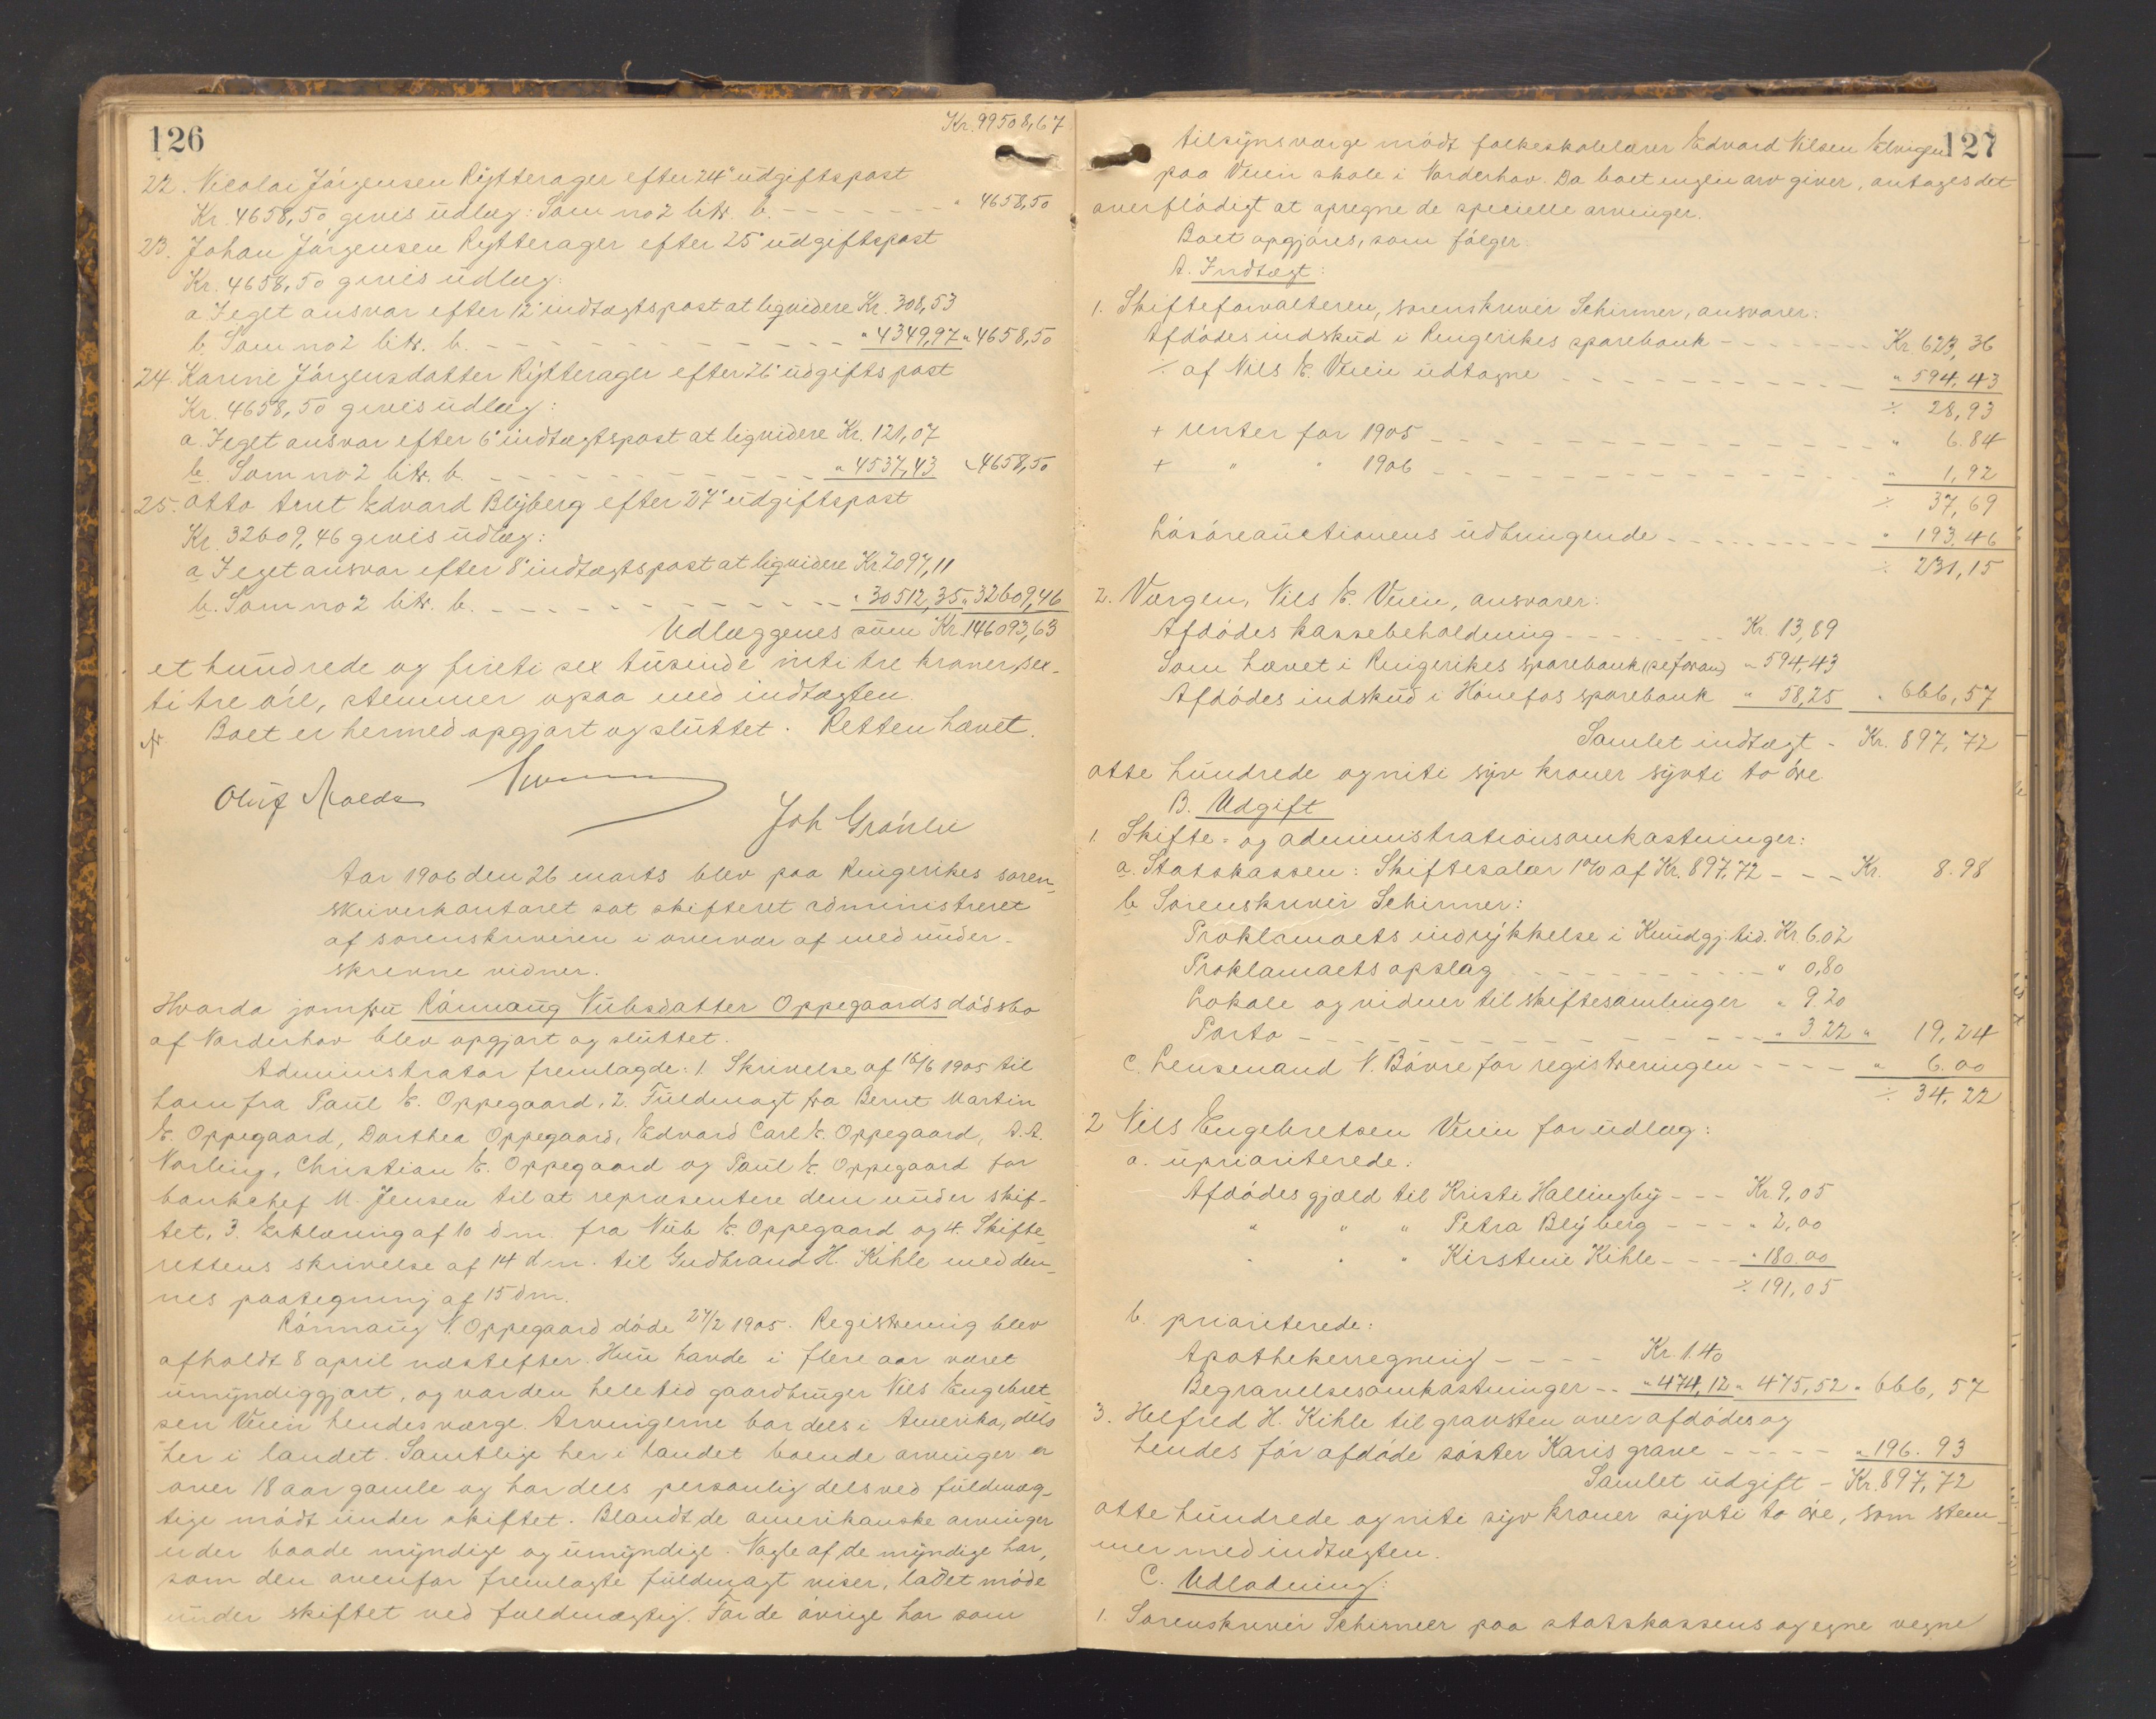 126
Kr. 99508,67
22. Nicolai Jörgensen Rytterager efter 24' udgiftspost
Kr. 4658,50 gives udlæg: Som no 2 litr. b. - - - - - - - " 4658,50
23. Johan Jörgensen Rytterager efter 25' udgiftspost
Kr. 4658,50 gives udlæg:
a. I eget ansvar efter 12' indtægtspost at liqvidere Kr. 308,53
b. Som no 2 litr. b. - - - - - - - - - - - " 4349,97 " 4658,50
24. Karine Jörgensdatter Rytterager efter 26' udgiftspost
Kr. 4658,50 gives udlæg:
a. I eget ansvar efter 6' indtægtspost at liqvidere Kr. 121,07
b. Som no 2 litr. b. - - - - - - - - - " 4537,43 " 4658,50
25. Otto Arnt Edvard Blyberg efter 27' udgiftspost
Kr. 32609,46 gives udlæg:
a. I eget ansvar efter 8' indtægtspost at liqvidere Kr 2097,11
b. Som no 2 litr. b. - - - - - - - - - - " 30512,35 " 32609,46
Udlæggenes sum Kr. 146093,63
et hundrede og firti sex tusinde niti tre kroner, sex-
ti tre öre, stemmer ogsaa med indtægten.
Boet er hermed opgjort og sluttet. Retten hævet.
Oluf
Joh Grönlie
Aar 1906 den 26 marts blev paa Ringerikes soren-
skriverkontoret sat skifteret administreret
af sorenskriveren i overvær af med under-
skrevne vidner.
Hvorda jomfru Rönnaug Nubsdatter Oppegaards dödsbo
af Norderhov blev opgjort og sluttet.
Administrator fremlagde: 1. Skrivelse af 16/6 1905 til
ham fra Paul E. Oppegaard, 2. Fuldmagt fra Bernt Martin
E. Oppegaard, Dorthea Oppegaard, Edvard Carl E. Oppegaard, A. A.
Norling, Christian E. Oppegaard og Paul E. Oppegaard for
bankchef M. Jensen til at repræsentere dem under skif-
tet, 3. Erklæring af 10 d.m. fra Nub E. Oppegaard og 4. Skifte-
rettens skrivelse af 14 d.m. til Gudbrand H. Kihle med den-
nes paategning af 15 d.m.
Rönnaug N. Oppegaard döde 27/2 1905. Registrering blev
afholdt 8 april næstefter. Hun havde i flere aar været
umyndiggjort, og var den hele tid gaardbruger Nils Engebret-
sen Veien hendes værge. Arvingerne bor dels i Amerika, dels
her i landet. Samtlige her i landet boende arvinger er
over 18 aar gamle og har dels personlig dels ved fuldmæg-
tige mödt under skiftet. Blandt de amerikanske arvinger
er der baade myndige og umyndige. Nogle af de myndige har,
som den ovenfor fremlagte fuldmagt viser, ladet möde
under skiftet ved fuldmægtig. For de övrige har som
127
tilsynsværge mödt folkeskolelærer Edvard Nilsen Elvigen
paa Veien skole i Norderhov. Da boet ingen arv giver, antages det
overflödigt at opregne de specielle arvinger.
Boet opgjöres, som fölger:
A. Indtægt:
1. Skifteforvalteren, sorenskriver Schirmer, ansvarer:
Afdödes indskud i Ringerikes sparebank - - - - - - - Kr. 623,36
÷ af Nils E. Veien udtagne - - - - - - - - - - - - " 594,43
÷ 28,93
+ renter for 1905 - - - - - - - - - - - - - - - " 6.84
+ " " 1906 - - - - - - - - - - - - - - - " 1,92
÷ 37,69
Lösöreauctionens udbringende - - - - - - - - - " 193.46
÷ 231,15
2. Værgen, Nils E. Veien, ansvarer:
Afdödes kassebeholdning - - - - - - - Kr. 13,89
Som hævet i Ringerikes sparebank (se foran) " 594,43
Afdödes indskud i Hönefos sparebank " 58,25 " 666,57
Samlet indtægt - Kr. 897,72
otte hundrede og niti syv kroner sytti to öre
B. Udgift
1. Skifte- og administrationsomkostninger:
a. Statskassen: Skiftesalær 1% af Kr. 897,72 - - - Kr. 8.98
b. Sorenskriver Schirmer:
Proklamaets indrykkelse i Kundgj. tid. Kr. 6.02
Proklamaets opslag - - - - - - - - - - " 0,80
Lokale og vidner til skiftesamlinger " 9.20
Porto - - - - - - - - - - - - - - " 3 22 " 19,24
c. Lensmand N. Bövre for registreringen - - - - " 6.00
÷ 34,22
2 Nils Engebretsen Veien for udlæg:
a. uprioriterede:
Afdödes gjæld til Kristi Hallingby - - - Kr. 9,05
" " " Petra Blyberg - - - " 2,00
" " " Kirstine Kihle - - - " 180.00
÷ 191,05
b. prioriterede:
Apothekerregning - - - - Kr. 1.40
Begravelsesomkostninger - - " 474,12 " 475,52 " 666,57
3. Helfred H. Kihle til gravsten over afdödes og
hendes för afdöde söster Karis grave - - - - - " 196.93
Samlet udgift - Kr. 897,72
otte hundrede og niti syv kroner sytti to öre, som stem-
mer med indtægten.
C. Udlodning:
1. Sorenskriver Schirmer paa statskassens og egne vegne